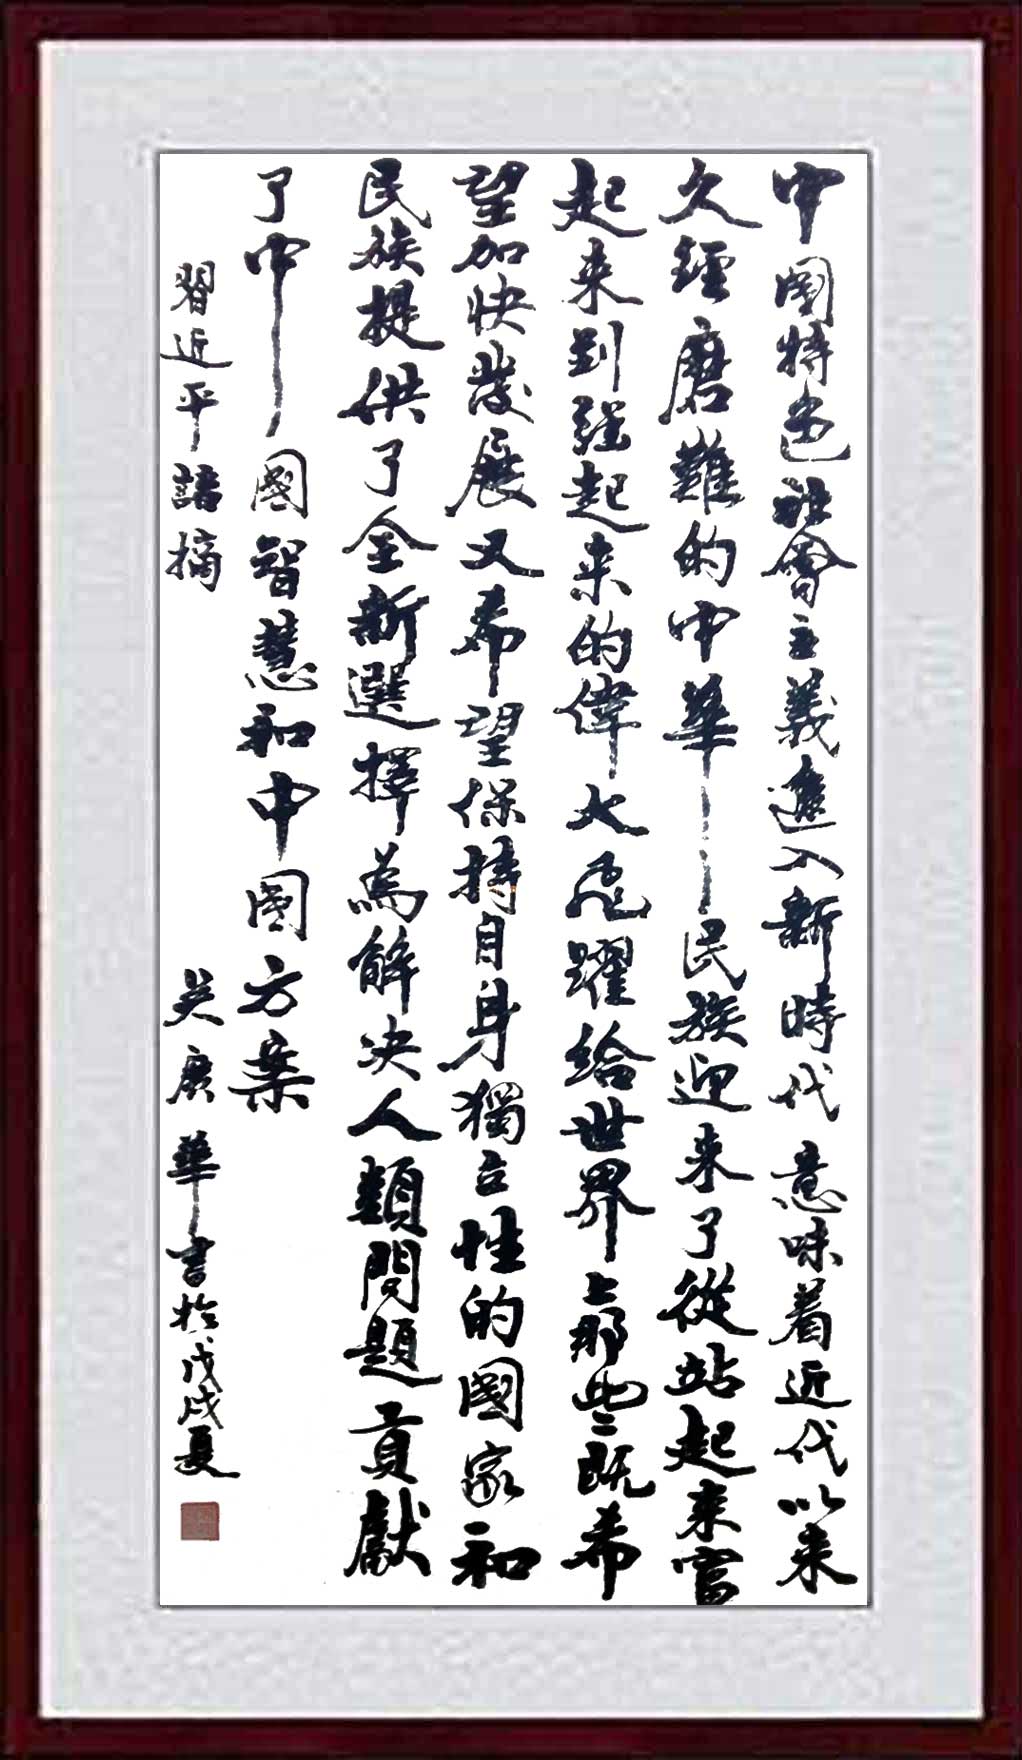 中國特色社會主義進入新時代意味着近代以来
久經磨難的中華民族迎来了從站起来富
起来到强起来的偉大飛躍給世界上那些既希
望加快發展又希望保持自身獨立性的國家和
民族提供了全新選擇為解决人類問題貢獻
了中國智慧和中國方案
習近平語摘
吴 華書於戊戌夏